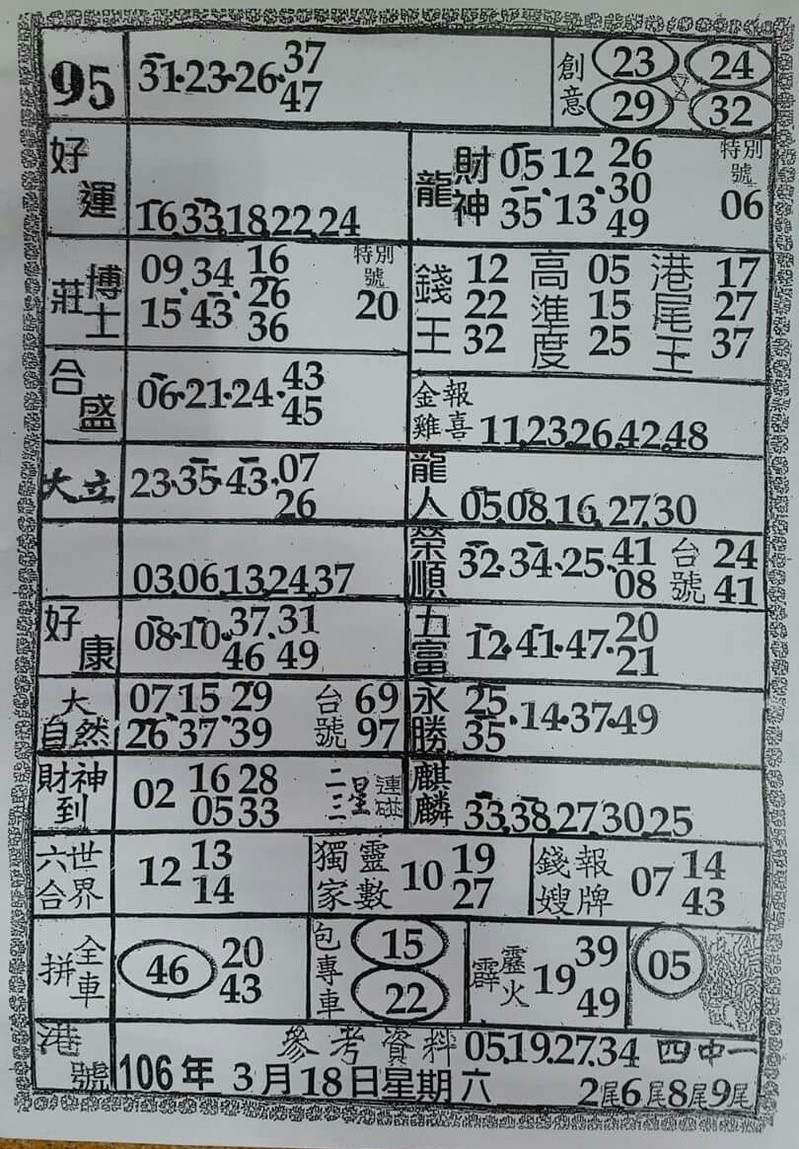 95 31·23·26·37 47
創意 23 24 29 32
好運 16.33.18.22.24
龍 財神 05 12 26 30 35 13 49 特別號 06
莊博士 09 34 16 26 15 43 36 特別號 20
錢王 12 22 32 高進度 05 15 25 港尾王 17 27 37
合盛 06·21·24·43 45
金雞報喜 11.23.26.42.48
大立 23·35·43·07 26
龍人 05.08.16.27.30
03.06.13.24.37
榮順 32·34·25·41 08 台號 24 41
好康 08·10·37·31 46 49
五富 12·41·47·20 21
大自然 07 15 29 26 37 39 台號 69 97
永勝 25 35·14·37·49
財神到 02 16 28 05 33 二三星 連碰
麒麟 33.38.27.30.25
六合世界 12 13 14
獨家靈數 10 19 27
錢嫂報牌 07 14 43
拼全車 46 20 43
包專車 15 22
霹靂火 19 39 49
05
港號 參考資料 05.19.27.34 四中一
106年 3月18日星期六 2尾6尾8尾9尾